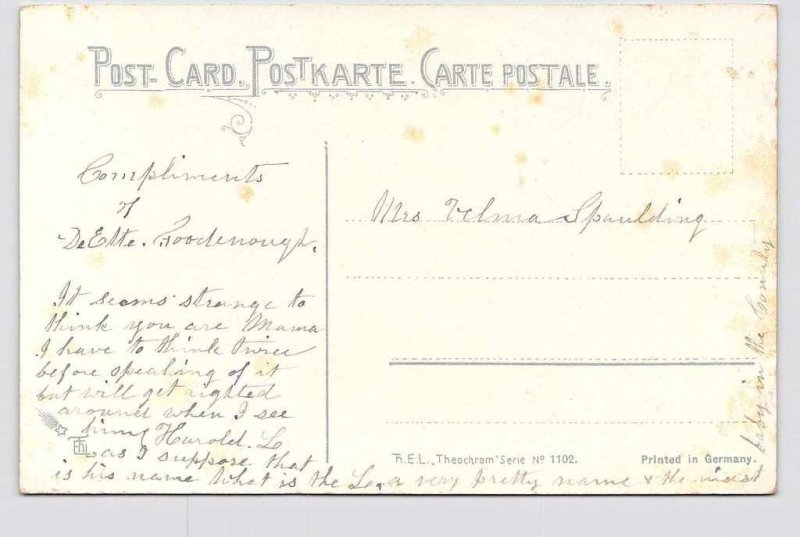 POST-CARD. POSTKARTE. CARTE POSTALE.
Compliments
of
DeEtte. Goodenough.
Mrs Velma Spaulding
It seems strange to
think you are Mama
I have to think twice
before speaking of it
but will get righted
around when I see
him, Harold. L
as I suppose that
is his name What is the L. a very pretty name & the nicest
baby in the County
Th.E.L. „Theochrom" Serie No 1102.
Printed in Germany.